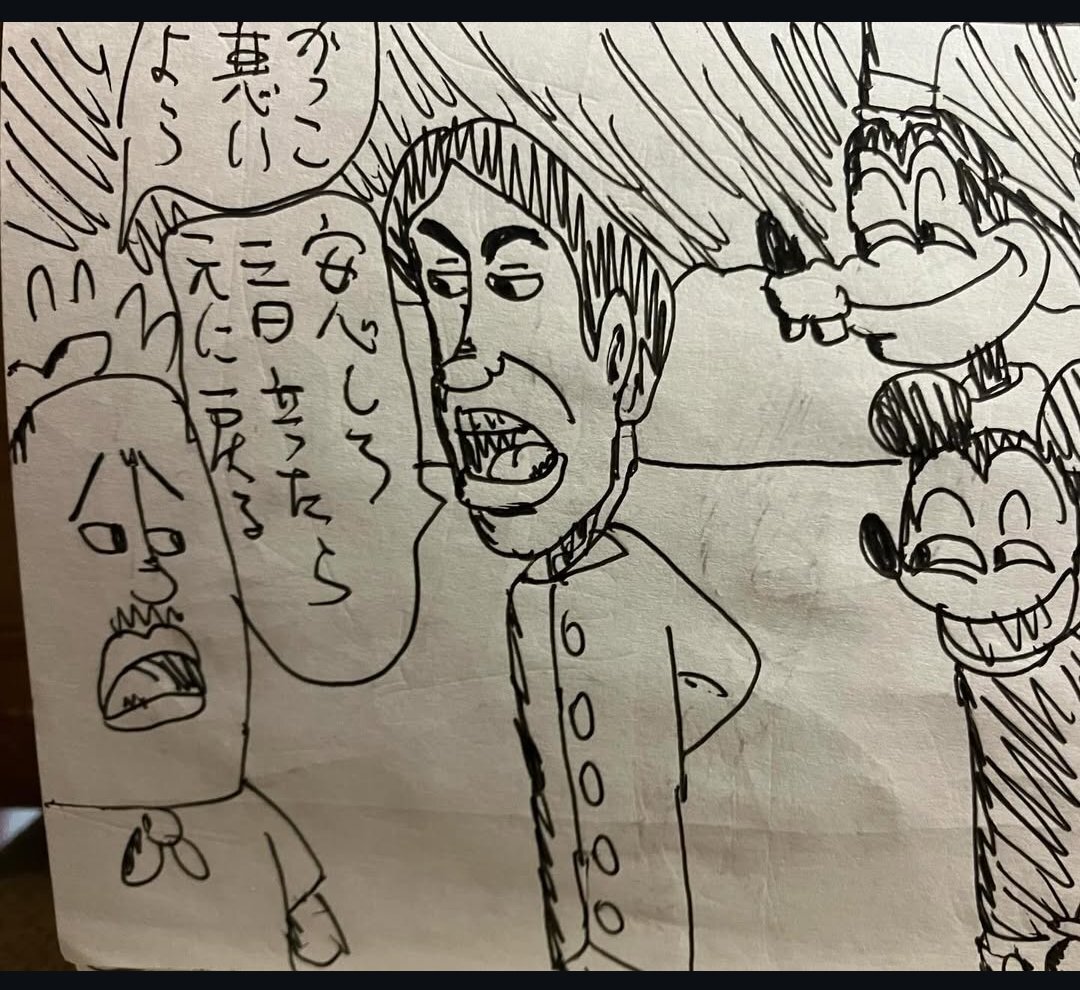 かっこ
悪い
ようう
安心しろ
三日立ったら
元に戻る